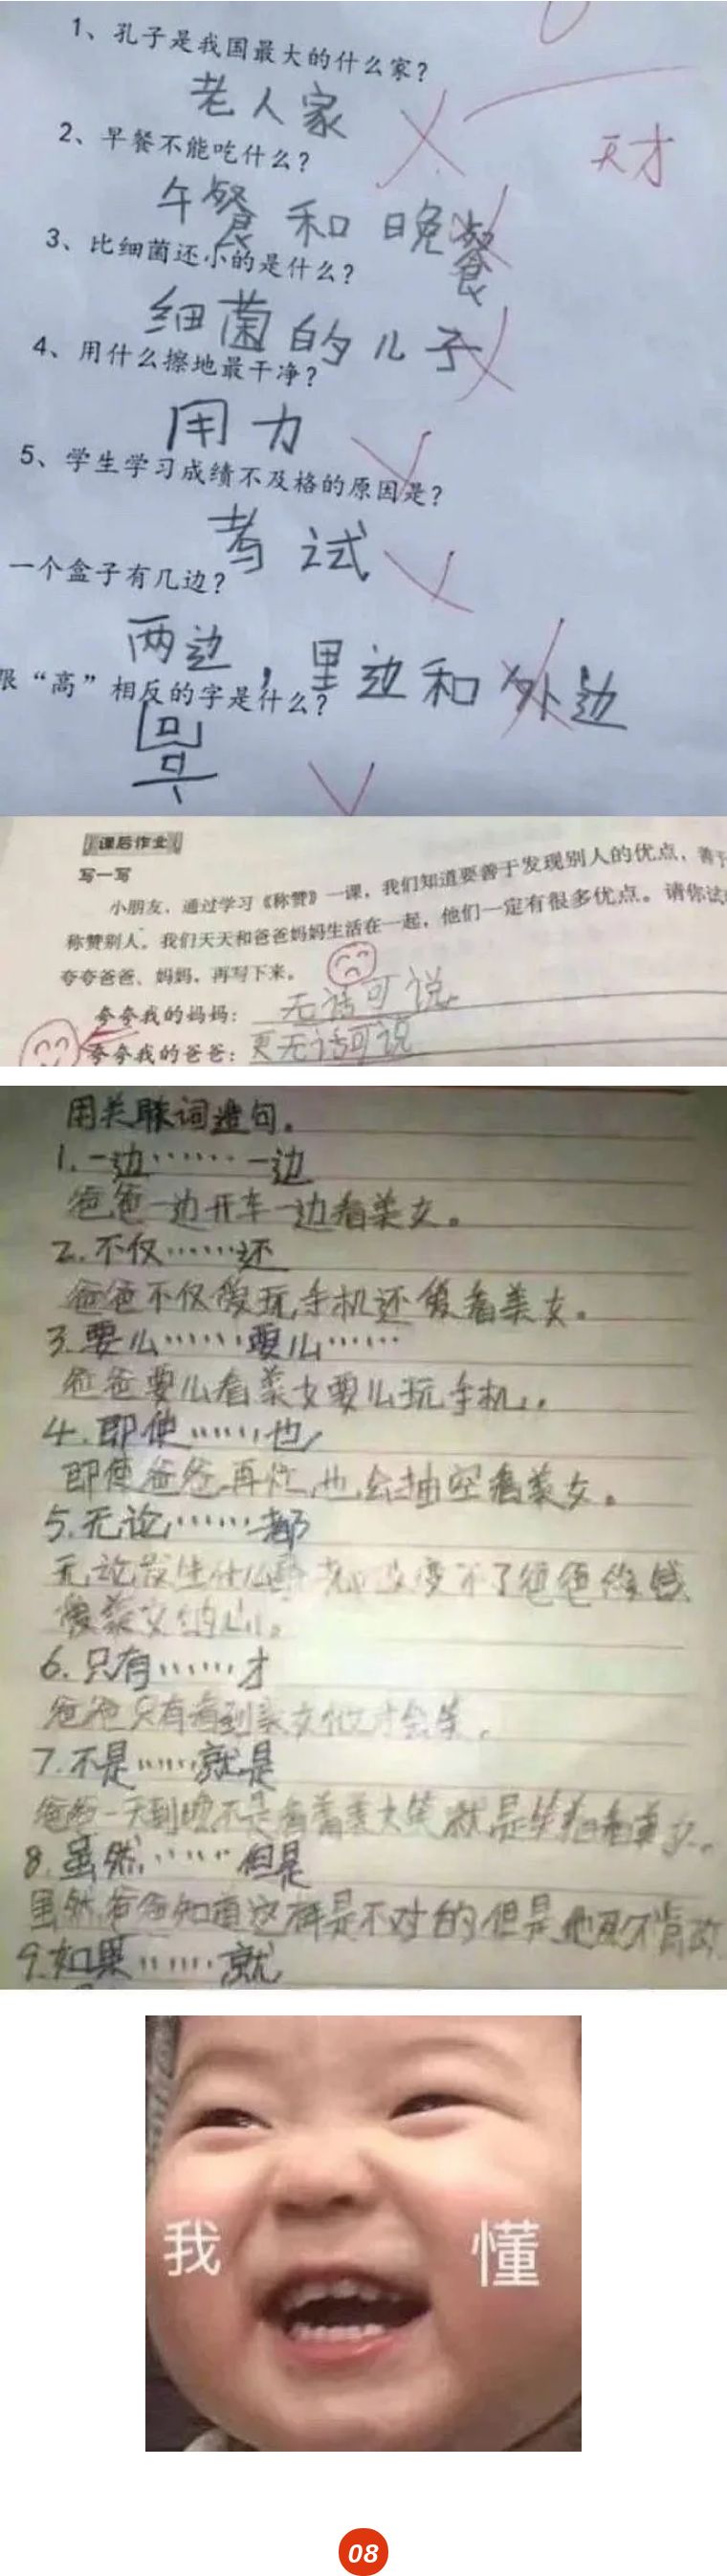 1、孔子是我国最大的什么家？
老人家
天才
2、早餐不能吃什么？
午餐和晚餐
3、比细菌还小的是什么？
细菌的儿子
4、用什么擦地最干净？
用力
5、学生学习成绩不及格的原因是？
考试
一个盒子有几边？
两边，里边和外边
跟“高”相反的字是什么？
课后作业
写一写
小朋友，通过学习《称赞》一课，我们知道要善于发现别人的优点，善于
称赞别人。我们天天和爸爸妈妈生活在一起，他们一定有很多优点。请你试
夸夸爸爸、妈妈，再写下来。
夸夸我的妈妈：无话可说
夸夸我的爸爸：更无话可说
用关联词造句。
1.一边……一边
爸爸一边开车一边看美女。
2.不仅……还
爸爸不仅爱玩手机还爱看美女。
3.要么……要么……
爸爸要么看美女要么玩手机。
4.即使……也
即使爸爸再忙,也会抽空看美女。
5.无论……都
无论发生什么事都改变不了爸爸
爱美女的心。
6.只有……才
爸爸只有看到美女他才会笑。
7.不是……就是
爸爸一天到晚不是看着美女笑就是笑着看美女。
8.虽然……但是
虽然爸爸知道这样是不对的但是他死不肯改
9.如果……就
我 懂
08